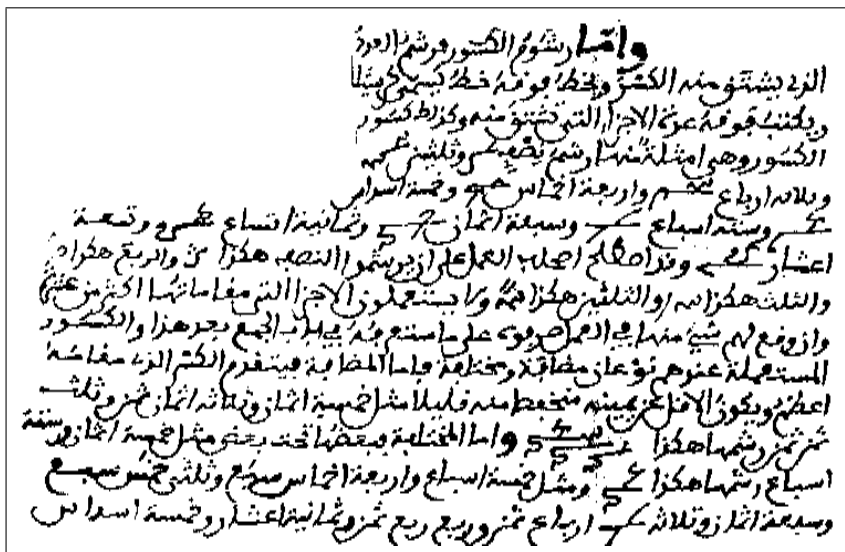 وامّا رشوم الكسور فرشم العدد
الذي يشتق منه الكسر ويخط فوقه خط
ويكتب فوقه عدة الاجزاء التي تشتق منه وكذلك كسور
الكسور وهي امثلة منها رشم نصف وثلثين
وثلاثة ارباع واربعة اخماس وخمسة اسداس
وستة اسباع وسبعة اثمان وثمانية اتساع وتسعة
اعشار وقد اصطلح اصحاب العمل على ان يرشموا النصف هكذا والربع هكذا
والثلث هكذا والثلثين هكذا ولا يستعملون الاجزا التي مقاماتها اكثر من عشرة
وان وقع لهم شيء منها في العمل على ما ستعرفه في باب الجمع بعد هذا والكسور
المستعملة عندهم نوعان مضافة ومختلفة فاما المضافة فيتقدم الكسر الذي مقامه
اعظم ويكون الاقل عن يمينه منخفظ منه قليلا مثل خمسة اثمان وثلاثة اثمان ثمن وثلث
ثمن ثمن رشمها هكذا واما المختلفة فبعضها تحت بعض مثل خمسة اثمان وستة
اسباع رشمها هكذا ومثل خمسة اسباع واربعة اخماس سبع وثلثي خمس سبع
وسبعة اثمان وثلاثة ارباع ثمن وربع ربع ثمن وثمانية اعشار وخمسة اسداس